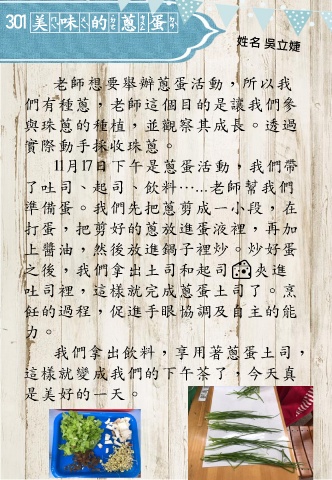 301美味的蔥蛋
姓名 吳立婕
老師想要舉辦蔥蛋活動，所以我
們有種蔥，老師這個目的是讓我們參
與珠蔥的種植，並觀察其成長。透過
實際動手採收珠蔥。
11月17日下午是蔥蛋活動，我們帶
了吐司、起司、飲料……老師幫我們
準備蛋。我們先把蔥剪成一小段，在
打蛋，把剪好的蔥放進蛋液裡，再加
上醬油，然後放進鍋子裡炒。炒好蛋
之後，我們拿出土司和起司夾進
吐司裡，這樣就完成蔥蛋土司了。烹
飪的過程，促進手眼協調及自主的能
力。
我們拿出飲料，享用著蔥蛋土司，
這樣就變成我們的下午茶了，今天真
是美好的一天。